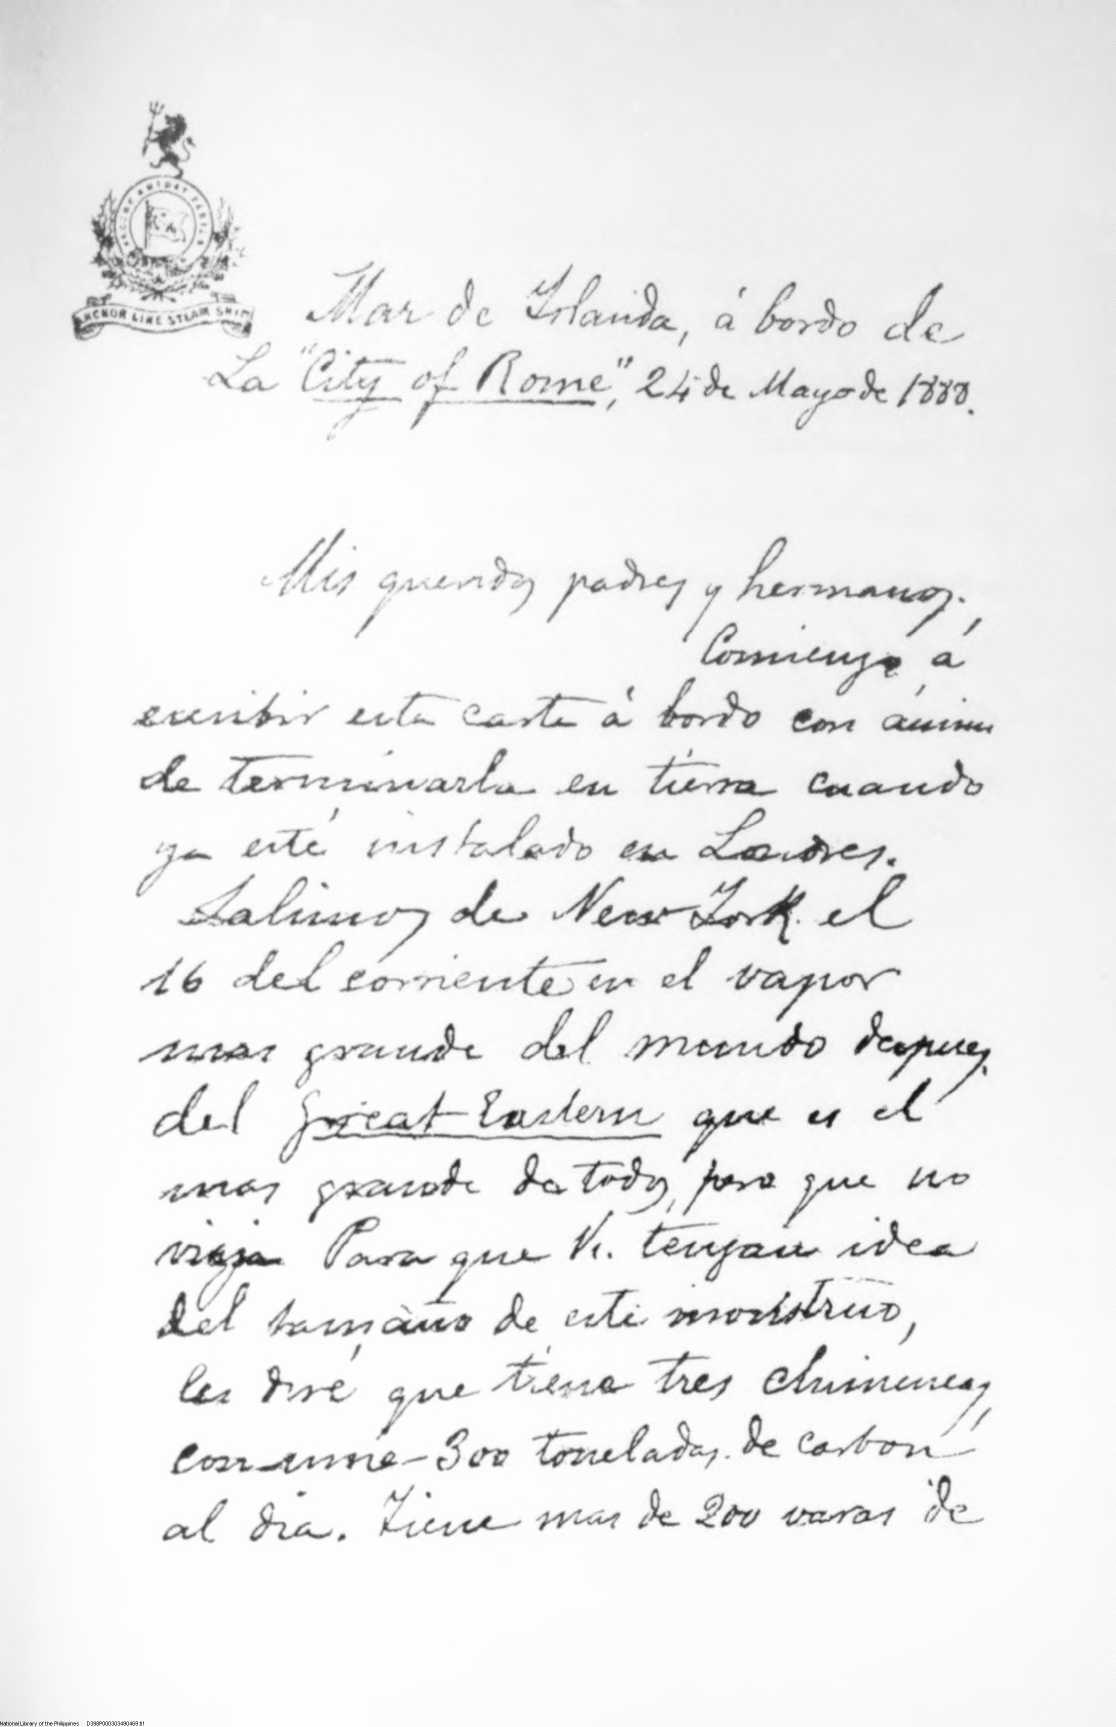 ANCHOR LINE STEAM SHIP
Mar de Irlanda, á bordo de
La "City of Rome", 24 de Mayo de 1888.
Mis queridos padres y hermanos.,
Comienzo á
escribir esta carta á bordo con ánimo
de terminarla en tierra cuando
ya esté instalado en Londres.
Salimos de New York el
16 del corriente en el vapor
mas grande del mundo despues
del Great Eastern que es el
mas grande de todos, pero que no
viaja Para que Vs. tengan idea
del tamaño de este monstruo,
les diré que tiene tres chimeneas,
consume 300 toneladas de carbon
al dia. Tiene mas de 200 varas de
National Library of the Philippines